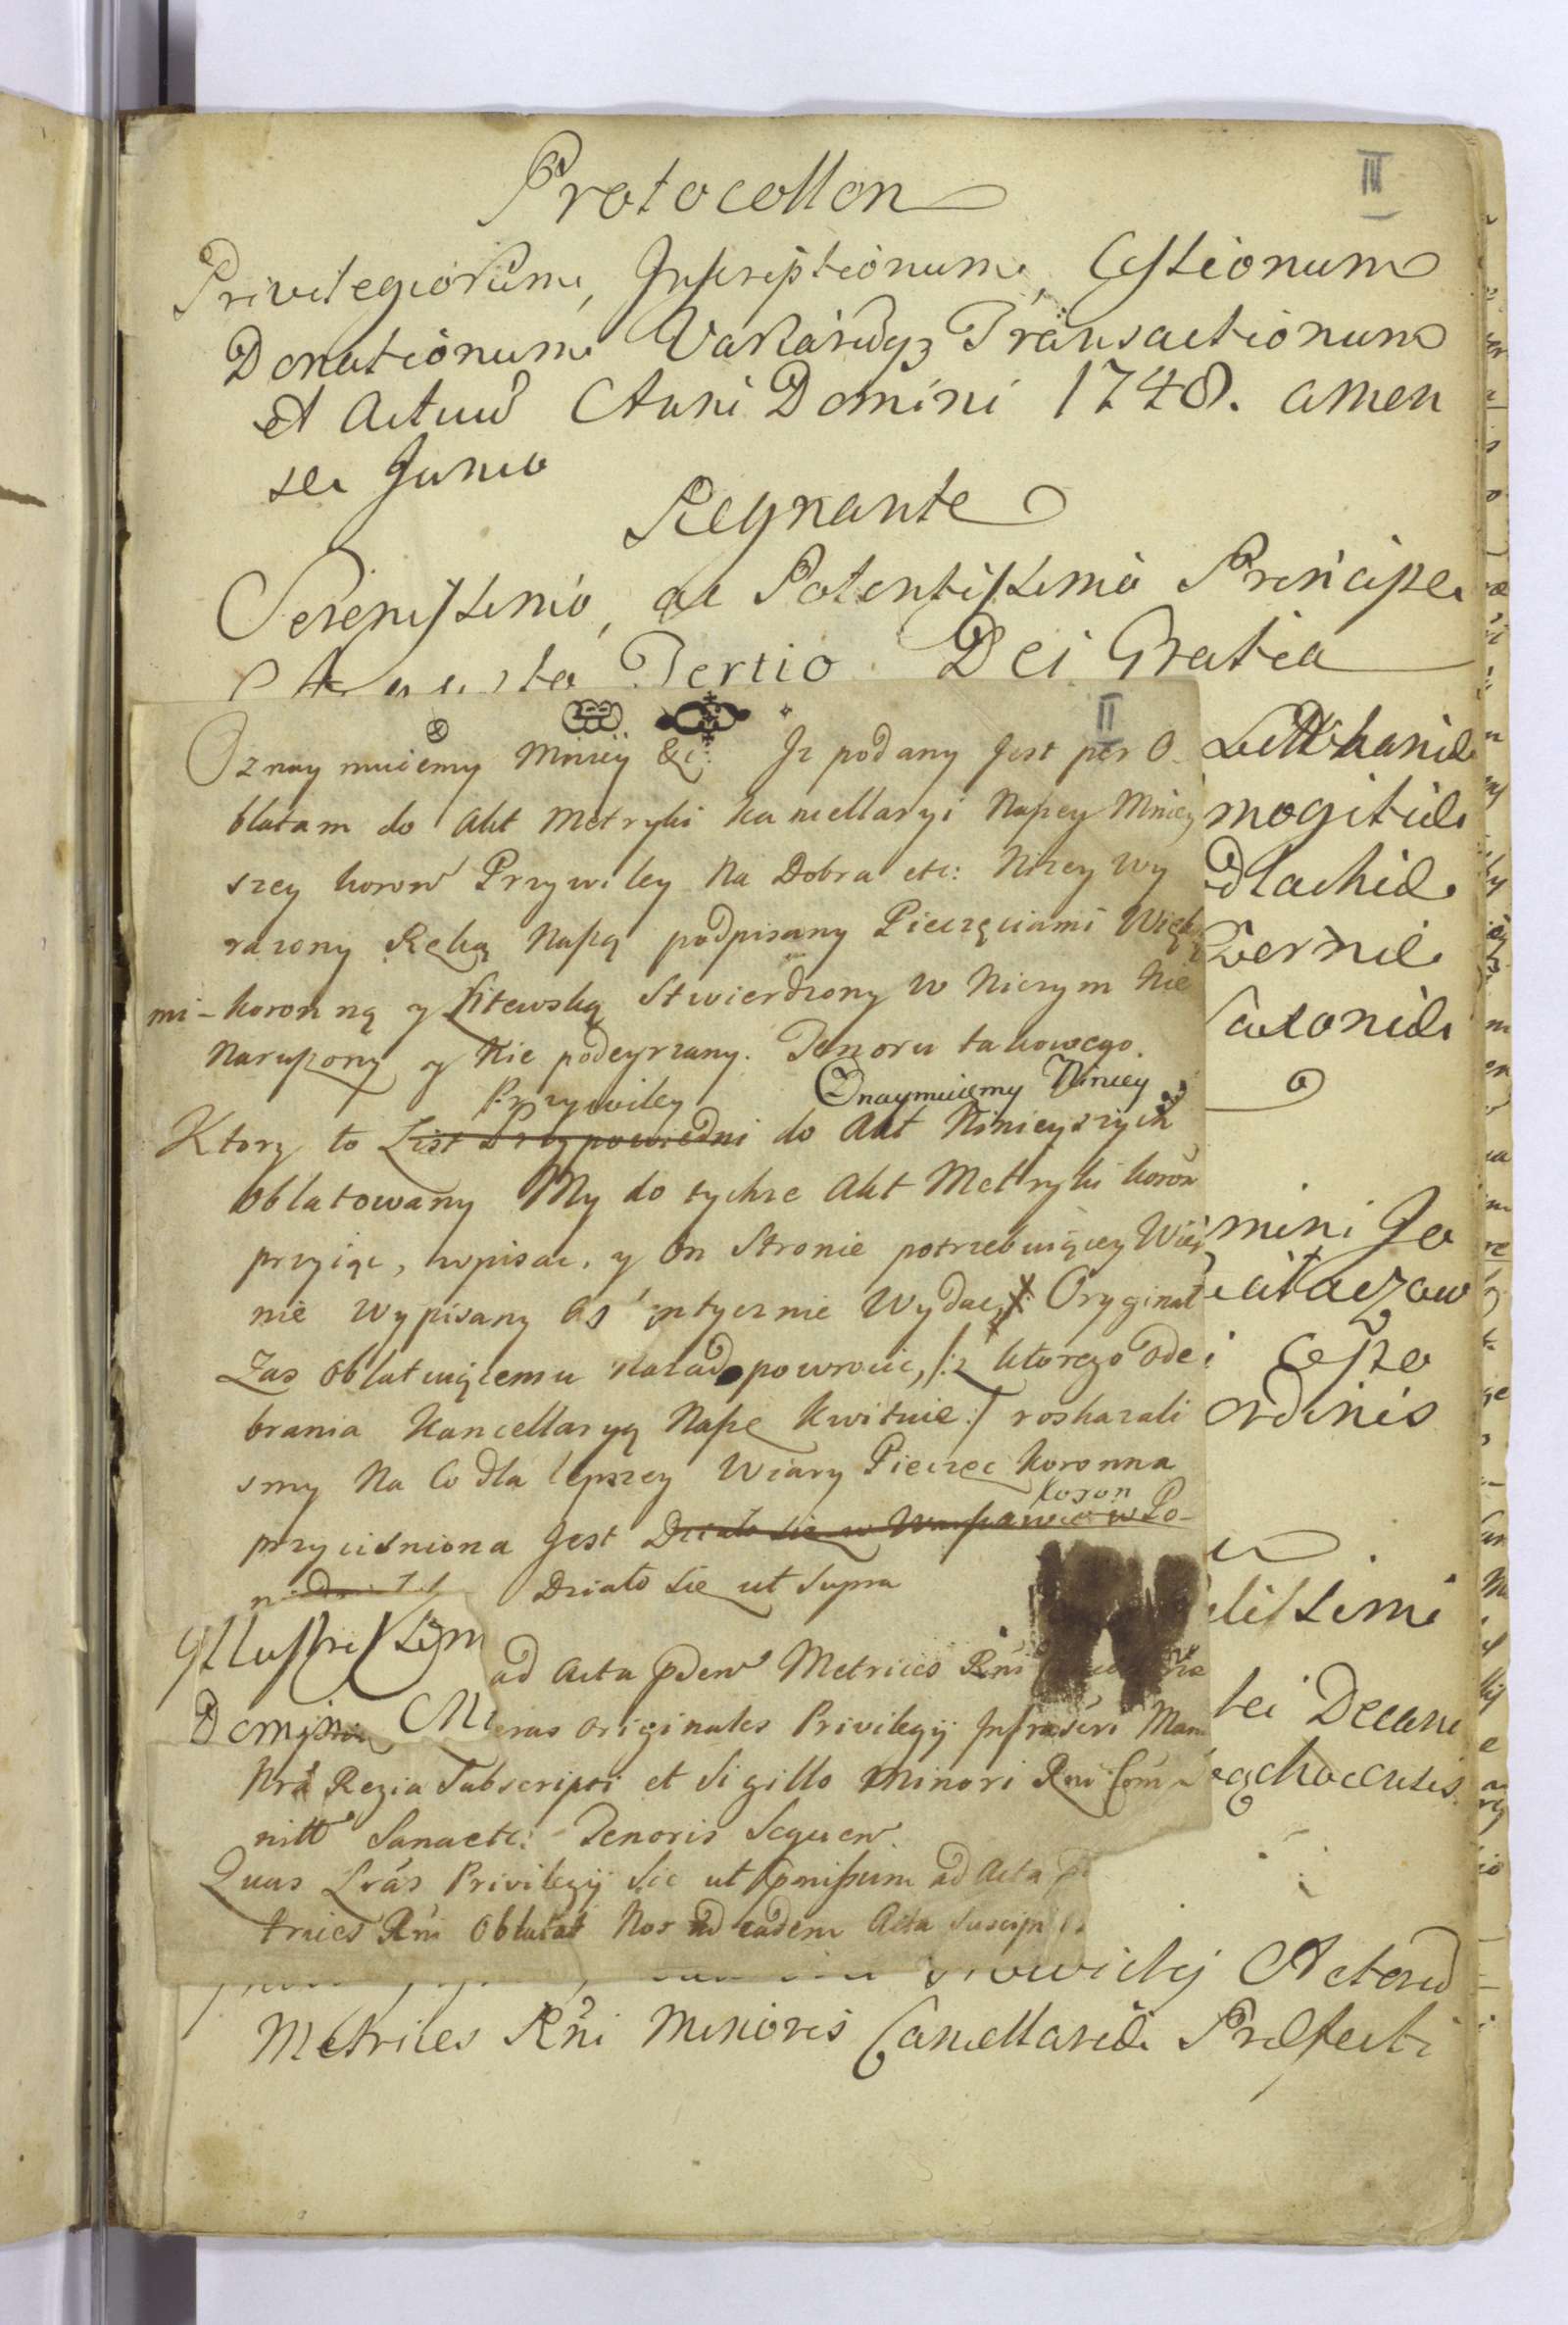 III
Protocollon
Privilegiorum, Inscriptionum, Cessionum
Donationum Variarūqȝ Transactionum
et Actuū Anni Domini 1748. a men
se Junio
Regnante
Serenissimo, ac Potentissimo Principe
Augusto Tertio Dei Gratia
II
Oznaymuiemy Ninieÿ &c: Iz podany Jest per O-
blatam do Akt Metryki kancellaryi Naszey Mniey
szey koron Przywiley Na Dobra etc: Niżey wy
razony Ręką Naszą podpisany Pieczęciami Więk
mi-koronną y Litewską Stwierdzony w Niczym Nie
Naruszony y Nie podeyrzany. Tenoru takowego.
Przywiley Oznaymuiemy Niniey
Ktory to List Przypowiedni do Akt Ninieyszych
oblatowany My do tychze Akt Metryki koron
przyiąc, wpisac, y on Stronie potrzebuiącey Wier
nie wypisany autentycznie Wydac, Oryginał
Zas oblatuiącemu nazad powrocic, /:z ktorego ode
brania Kancellaryą Naszę kwituie:/ roskazali
smy Na Co dla lepszey Wiary Pieczęc koronna
koron
przycisniona Jest Działo się w Warszawie w Po-
Działo się ut supra
Illustrissim
ad Acta pdem Metrices Rni
Domini
eras originales Privilegij Infrascri Manu
Nrā Regia Subscripti et Sigillo Minori Rni Com
nitt Sanaetc: Tenoris Sequen.
Quas Lrās Privilegij Sic ut pmissum ad Acta
trices Rni oblatas Nos ad eadem Acta Suscip
Litthuaniæ
mogitiæ
dlachiæ
Czerniè
Saxoniæ
mini Jo
Cesso
ordinis
lissimi
tei Decani
Actorū
Metrices Rñi Minoris Cancellariæ Præfecti